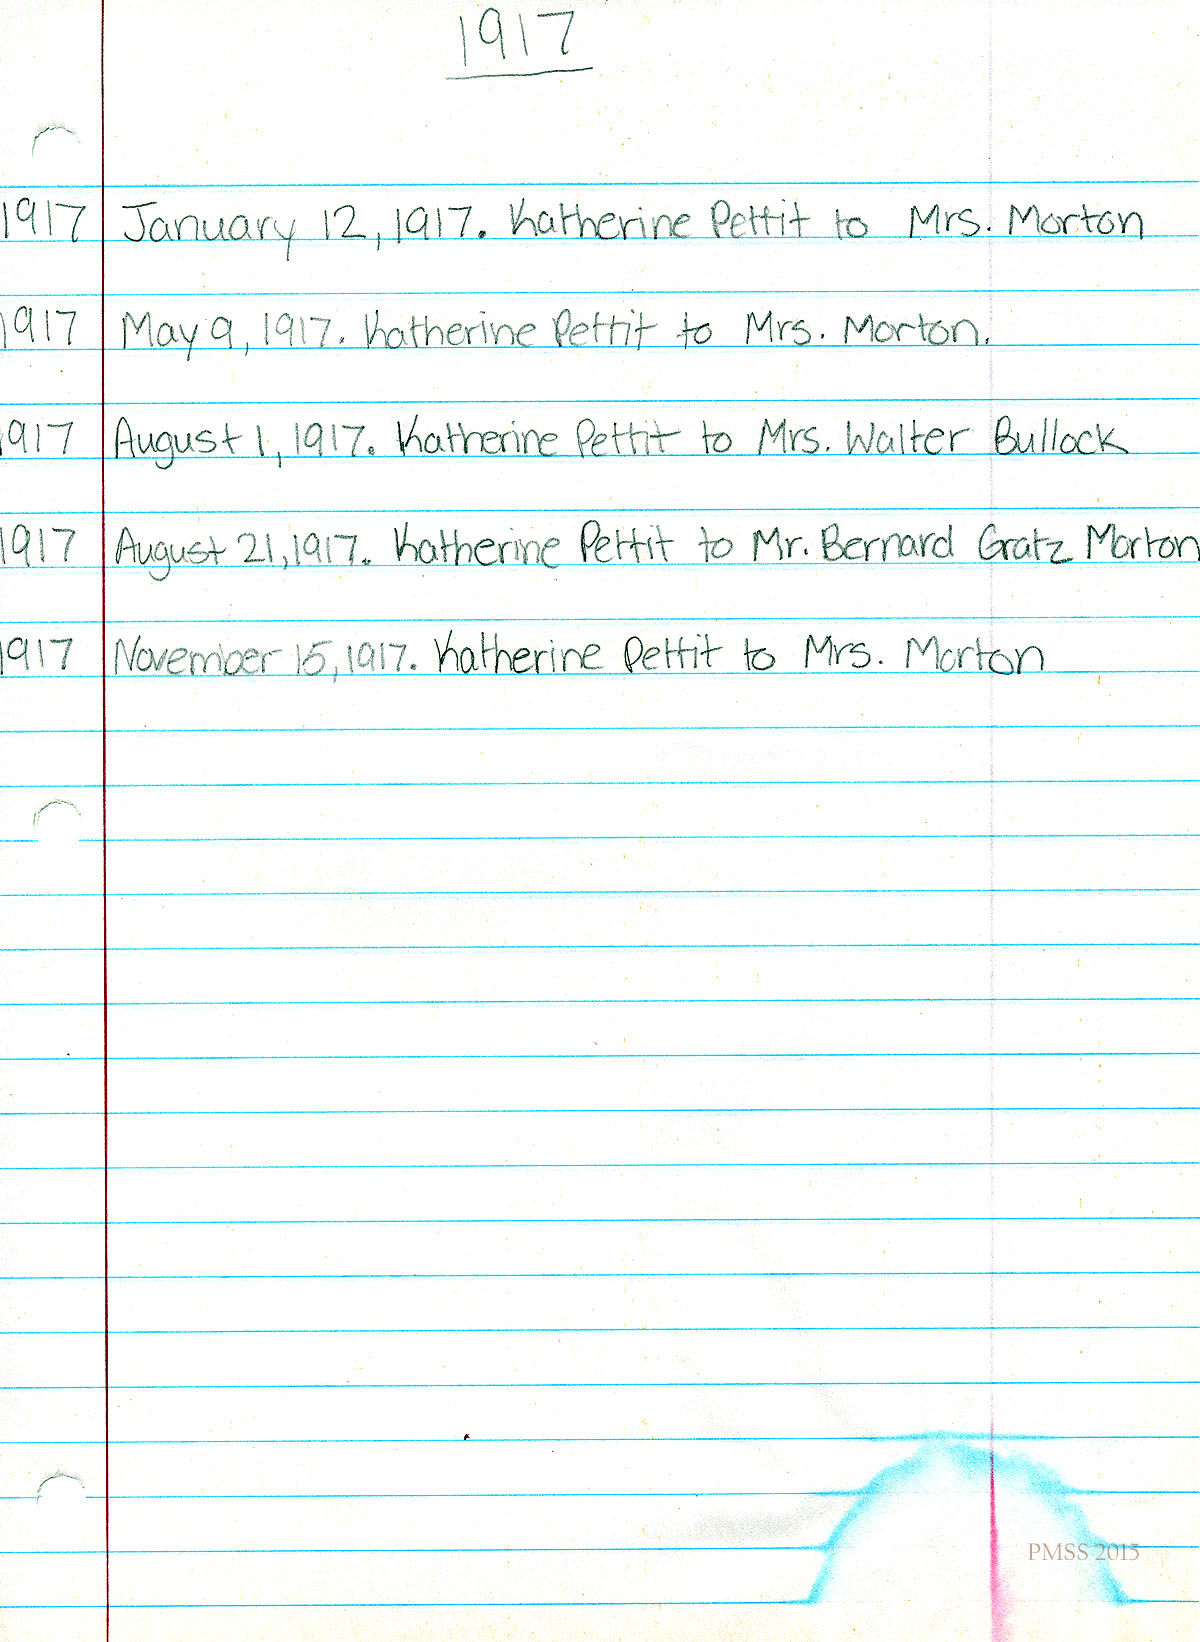 1917
1917 January 12, 1917. Katherine Pettit to Mrs. Morton
1917 May 9, 1917. Katherine Pettit to Mrs. Morton.
1917 August 1, 1917. Katherine Pettit to Mrs. Walter Bullock
1917 August 21, 1917. Katherine Pettit to Mr. Bernard Gratz Morton
1917 November 15, 1917. Katherine Pettit to Mrs. Morton
PMSS 2015